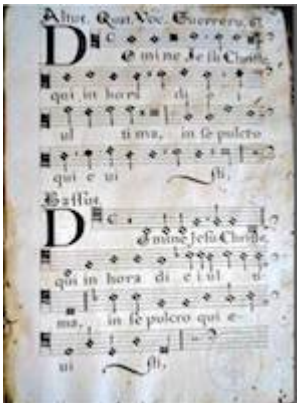 Altus. Quat. Voc. Guerrero. 67.
Domine Jesu Christe,
qui in hora di e i
ul ti ma, in se pulcro
qui e ui sti,
Bassus.
Domine Jesu Christe,
qui in hora di e i ul ti
ma, in se pulcro qui e-
ui sti,